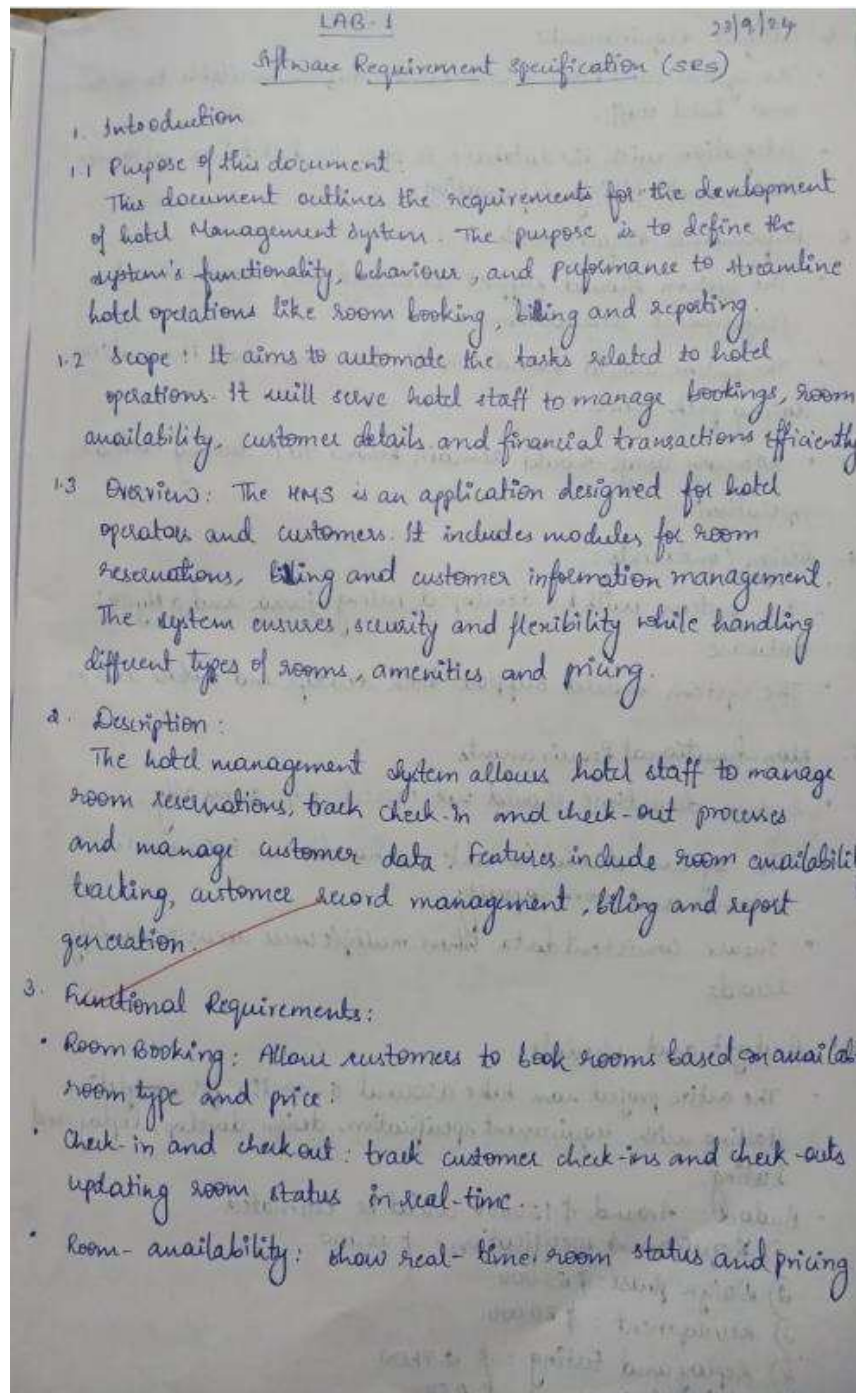 LAB-1
23/9/24
Software Requirement Specification (SRS)
1. Introduction
1.1 Purpose of this document:
This document outlines the requirements for the development
of hotel Management System. The purpose is to define the
system's functionality, behaviour, and Puformance to streamline
hotel operations like room booking, billing and reporting.
1.2 Scope: It aims to automate the tasks related to hotel
operations. It will serve hotel staff to manage bookings, room
availability, customer details and financial transactions efficiently
1.3 Overview: The HMS is an application designed for hotel
operators and customers. It includes modules for room
reservations, billing and customer information management.
The system ensures, security and flexibility while handling
different types of rooms, amenities and pricing.
2. Description:
The hotel management system allows hotel staff to manage
room reservations, track check-in and check-out processes
and manage customer data. Features include room availabilit
tracking, customer record management, billing and report
generation.
3. Functional Requirements:
• Room Booking: Allow customers to book rooms based on availab
room type and price.
• Check-in and checkout: track customer check-ins and check-outs
updating room status in real-time.
• Room-availability: show real-time room status and pricing